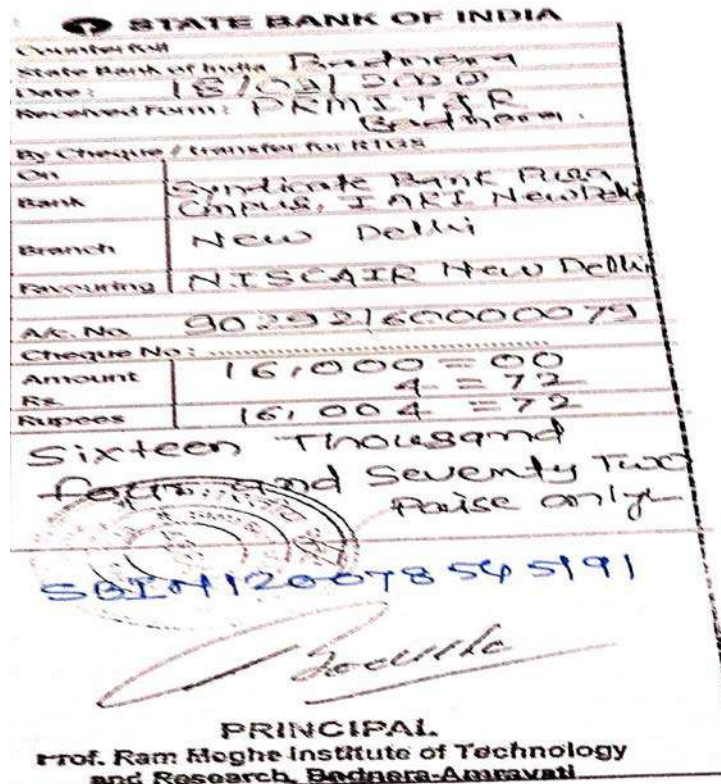 STATE BANK OF INDIA
Counterfoil
State Bank of India Badnera
Date: 18/03/2020
Received Form: PRMIT&R
Badnera.
By Cheque / transfer for RTGS
On
Bank Syndicate Bank Pusa
Cmpus, IARI New Delhi
Branch New Delhi
Favouring NISCAIR New Delhi
A/c. No. 90292160000079
Cheque No: ..............................
Amount 16,000=00
Rs. 4=72
Rupees 16,004=72
Sixteen Thousand
four and Seventy Two
Paise only
SBIN120078545191
PRINCIPAL
Prof. Ram Meghe Institute of Technology
and Research, Badnera-Amravati